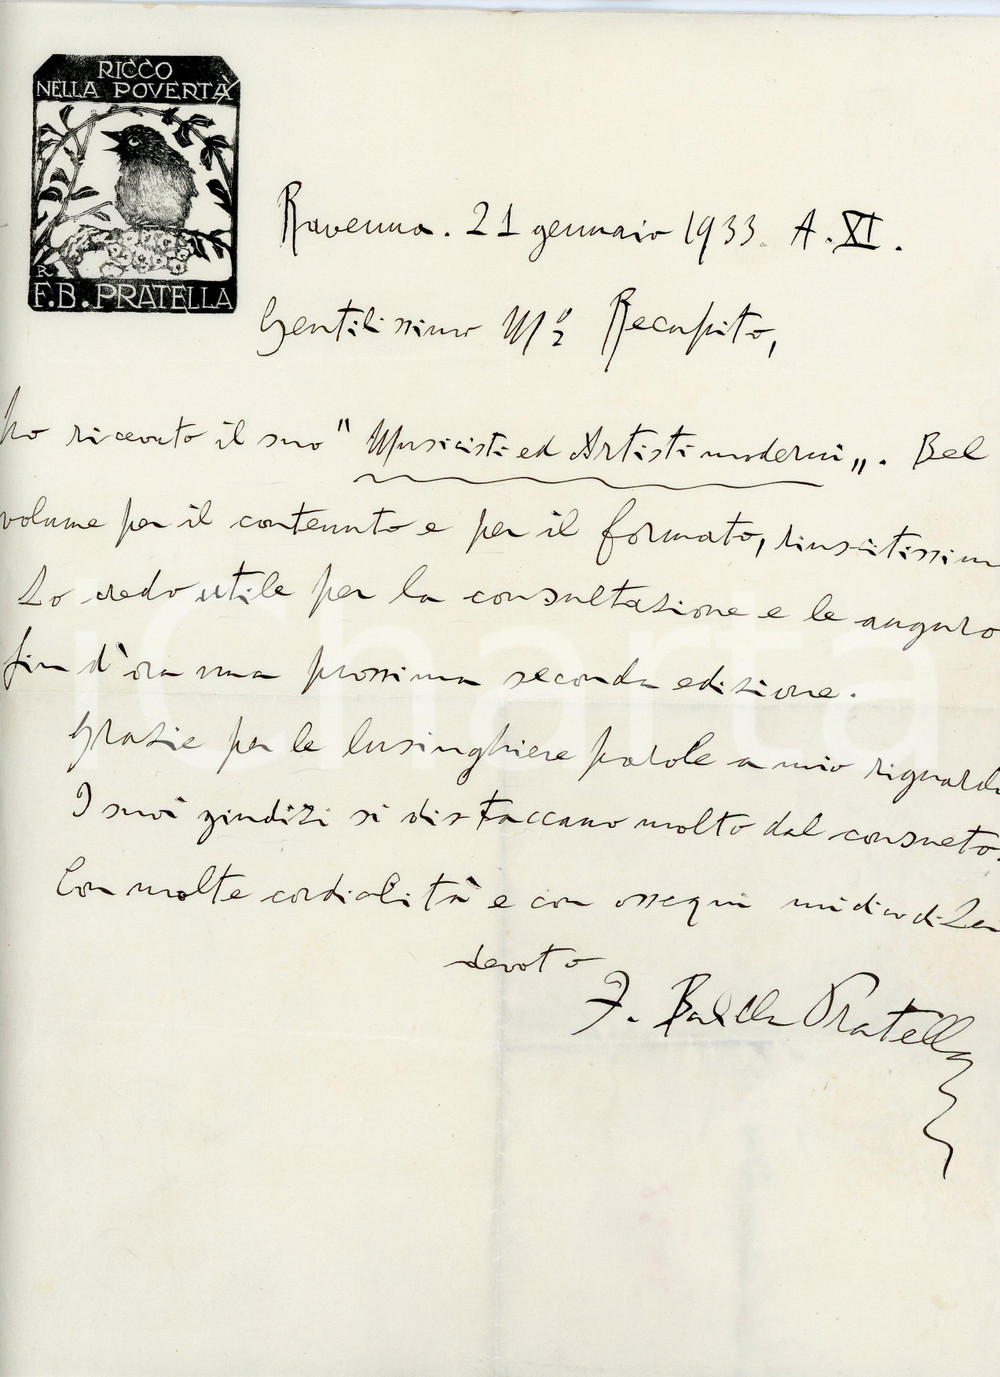 RICCO
NELLA POVERTÀ
R.
F.B. PRATELLA
Ravenna. 21 gennaio 1933. A. XI.
Gentilissimo Mº Recupito,
ho ricevuto il suo "Musicisti ed Artisti moderni„. Bel
volume per il contenuto e per il formato, riuscitissim
Lo credo utile per la consultazione e le auguro
fin d'ora una prossima seconda edizione.
Grazie per le lusinghiere parole a mio riguardo
I suoi giudizi si distaccano molto dal consueto.
Con molte cordialità e con ossequi mi dico di Lei
devoto
F. Balilla Pratella
iCharta